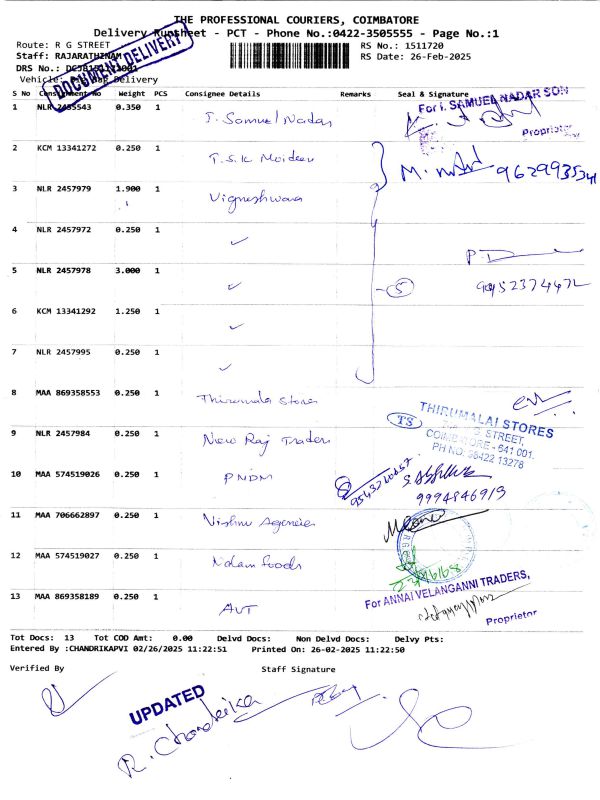 THE PROFESSIONAL COURIERS, COIMBATORE
Delivery Runsheet - PCT - Phone No.:0422-3505555 - Page No.:1
Route: R G STREET
RS No.: 1511720
Staff: RAJARATHINAM
RS Date: 26-Feb-2025
DRS No.:
Vehicle: Delivery
DOCUMENT DELIVERY
S No Consignment No Weight PCS Consignee Details Remarks Seal & Signature
1 NLR 2455543 0.350 1 I. Samuel Nadar
For I. SAMUEL NADAR SON
Proprietor
2 KCM 13341272 0.250 1 T.S.K Moideen
9629935341
3 NLR 2457979 1.900 1 Vigneshwara
4 NLR 2457972 0.250 1 ✓
5 NLR 2457978 3.000 1 ✓
5
6 KCM 13341292 1.250 1 ✓
7 NLR 2457995 0.250 1 ✓
8 MAA 869358553 0.250 1 Thirumala Stores
THIRUMALAI STORES
TS
STREET,
COIMBATORE - 641 001.
9 NLR 2457984 0.250 1 New Raj Traders
10 MAA 574519026 0.250 1 PNDM
9994846919
11 MAA 706662897 0.250 1 Vishnu Agencies
12 MAA 574519027 0.250 1 Nolam foods
13 MAA 869358189 0.250 1 AVT
For ANNAI VELANGANNI TRADERS,
Proprietor
Tot Docs: 13 Tot COD Amt: 0.00 Delvd Docs: Non Delvd Docs: Delvy Pts:
Entered By :CHANDRIKAPVI 02/26/2025 11:22:51 Printed On: 26-02-2025 11:22:50
Verified By Staff Signature
UPDATED
R. Chandrika